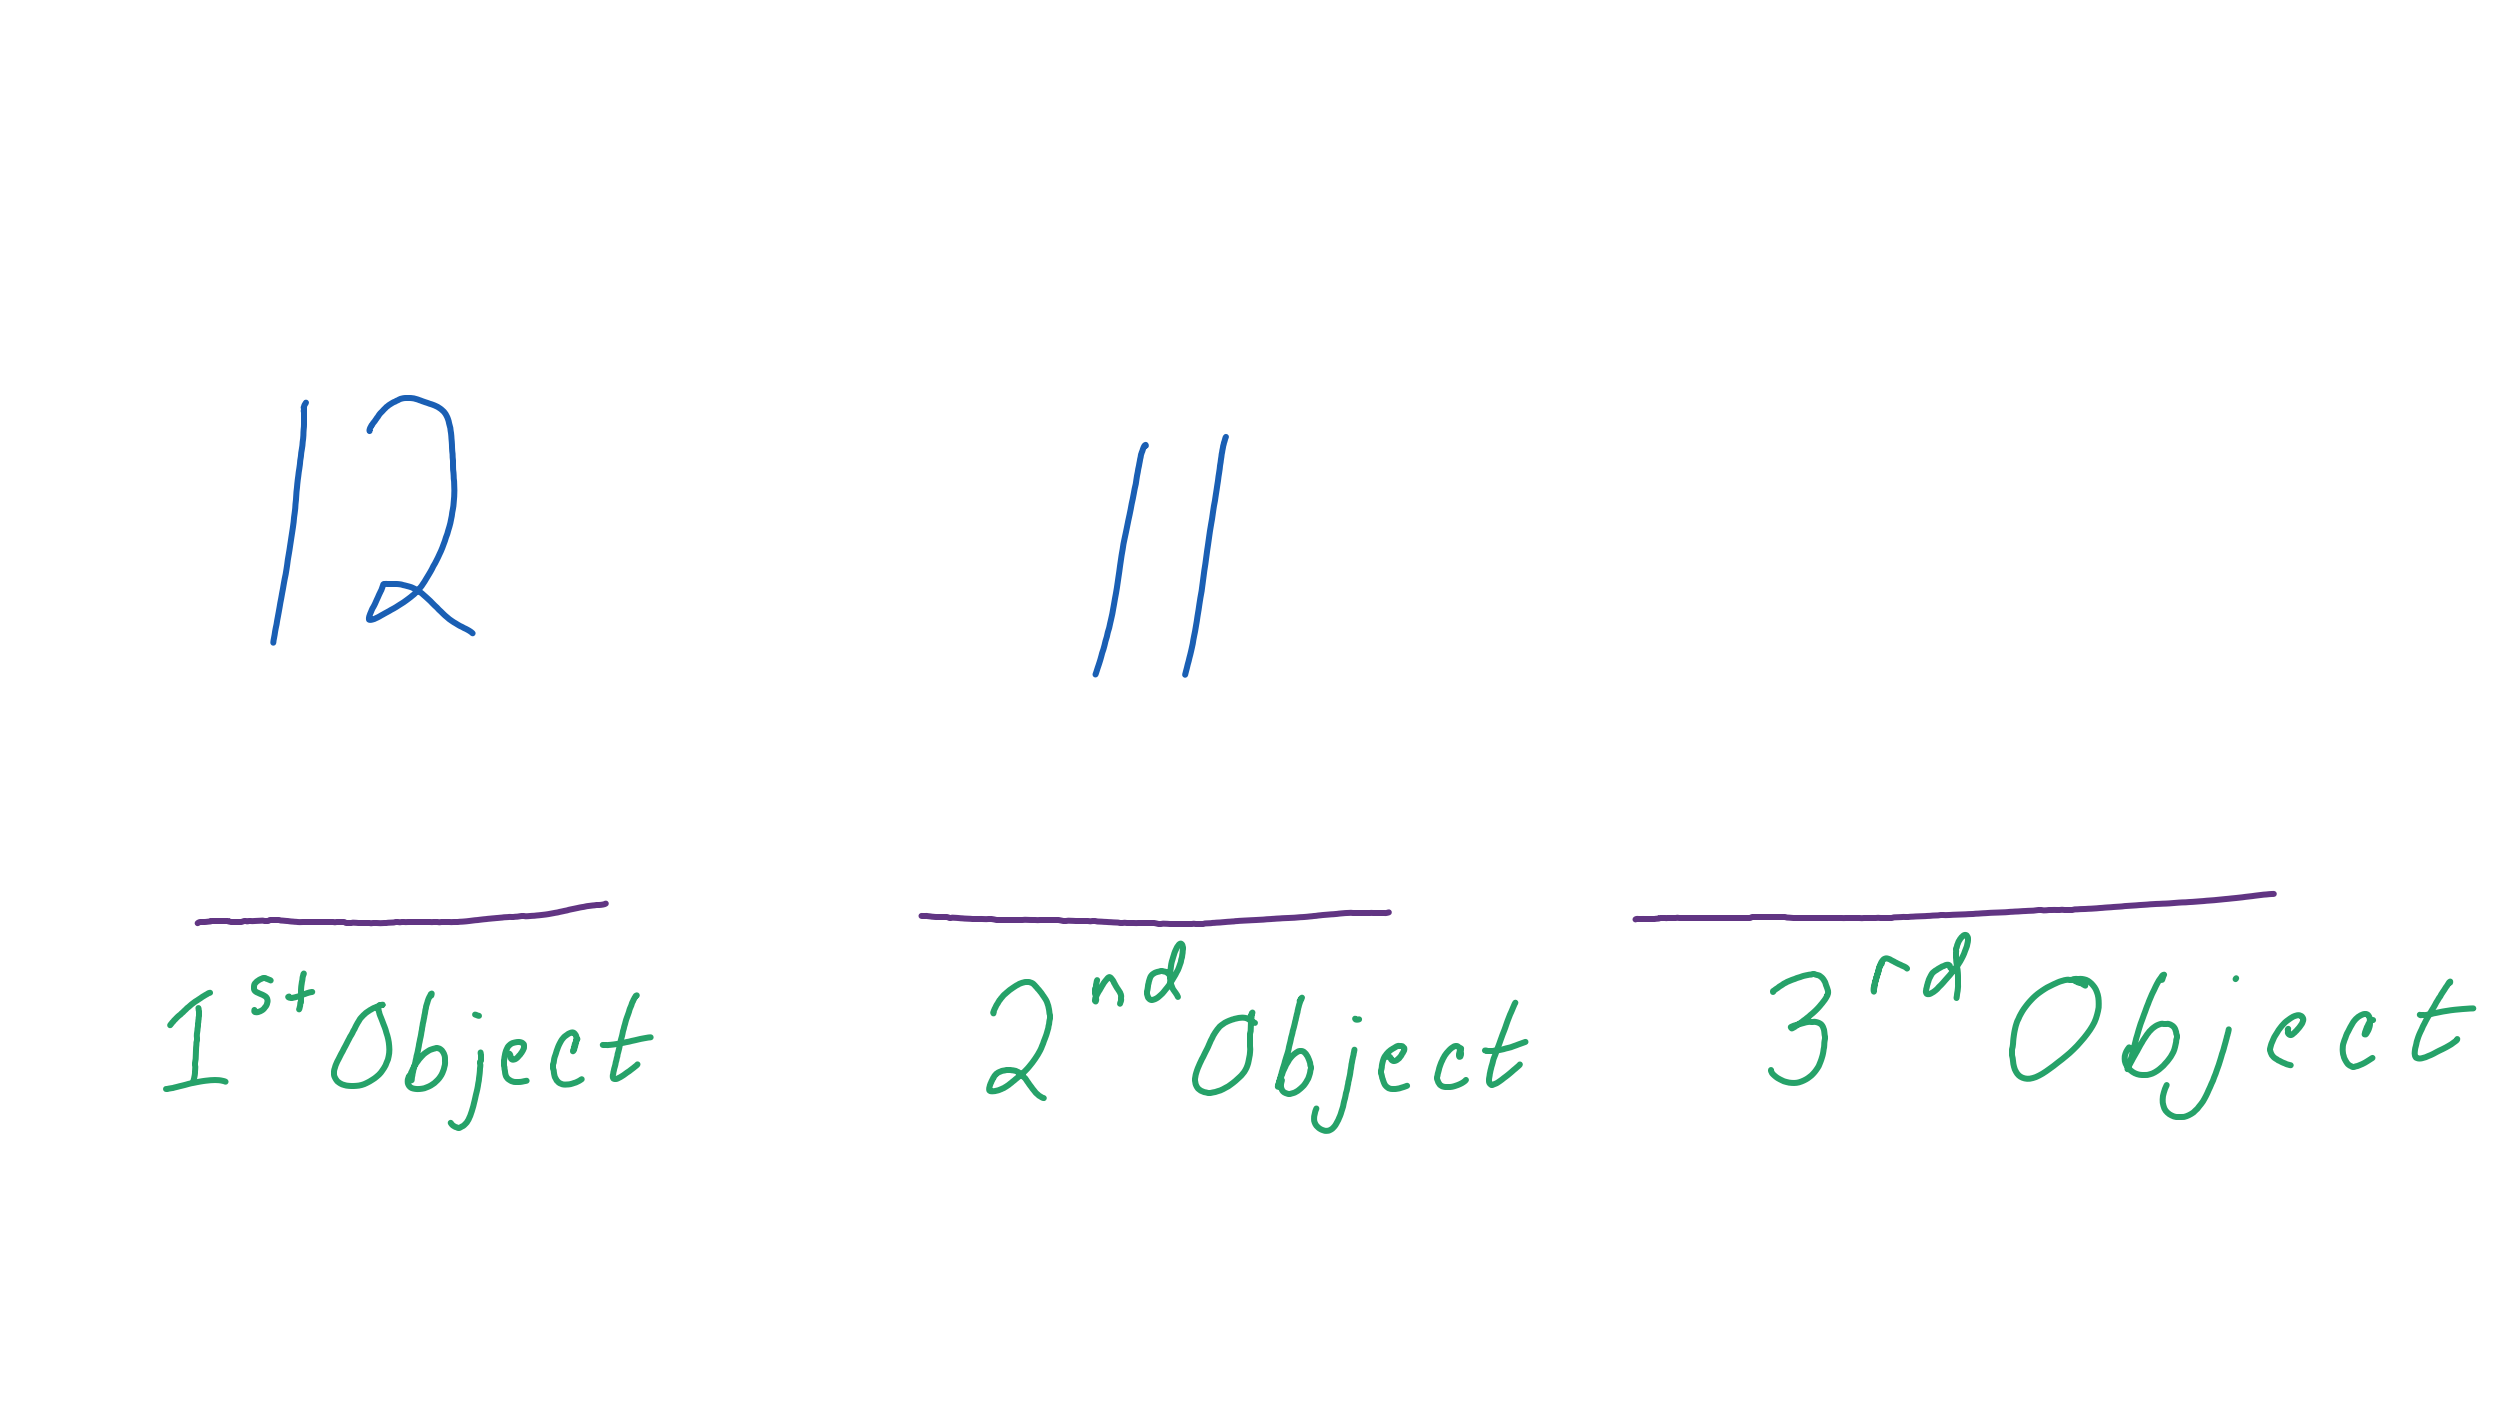 12 11
1st Object 2nd Object 3rd Object